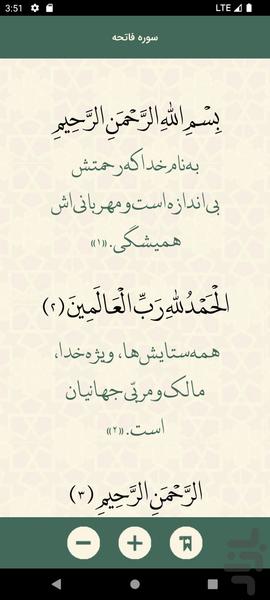 3:51
LTE
سوره فاتحه
بِسْمِ اللهِ الرَّحْمَنِ الرَّحِيمِ
به نام خدا که رحمتش
بی‌اندازه است و مهربانی‌اش
همیشگی. «۱»
الْحَمْدُ للهِ رَبِّ الْعَالَمِينَ (۲)
همه ستایش‌ها، ویژه خدا،
مالک و مربّی جهانیان
است. «۲»
الرَّحْمَنِ الرَّحِيمِ (۳)
بازار